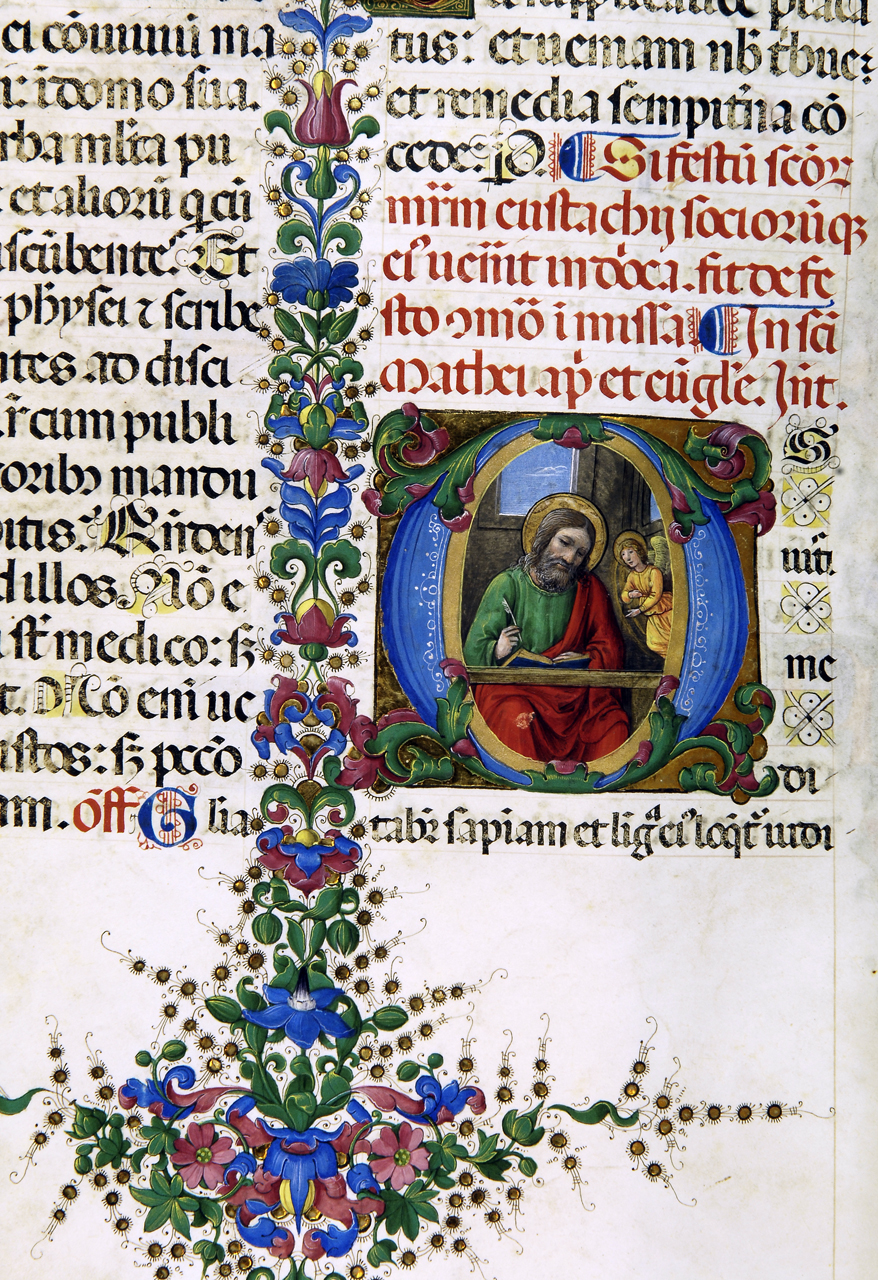 ci cōuiuiū ma
i domo sua.
rba ml̄ta pu
et aliorū q̄ cū
scūbentes. Et
pharysei ⁊ scribe
ntes ad disci
cum publi
toribꝫ mandu
bitis. Et r̄ndens
dillos. Nō e
st̄ medico: sꝫ
t. Nō eni ue
iustos: sꝫ pccō
am. off̄ Glia
tus: et ueniam nb̄ tbue:
et remedia sempit̄na cō
cede. P. Si festū scōꝝ
mr̄m eustachij sociorūqꝫ
eiꝰ uen̄it in dōca. fit de fe
sto ꝯmō i missa In sc̄i
Mathei ap̄ et eūgl̄e. Int.
OS
iusti
me
di
tabr̄ sapiam et lig̃ eiꝰ loq̄t̄ iudi